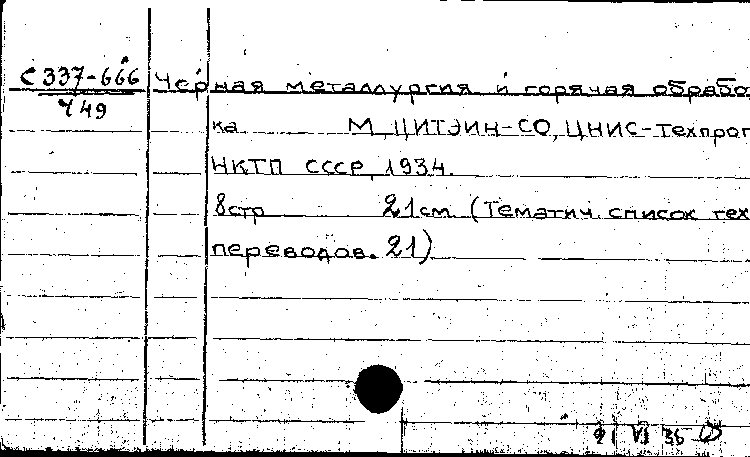 С337-666 Черная металлургия и горячая обрабо
Ч49
ка М, ЦИТЭИН-СО, ЦНИС-Техпроп
НКТП СССР, 1934.
8стр 21см (Тематич. список тех
переводов. 21)